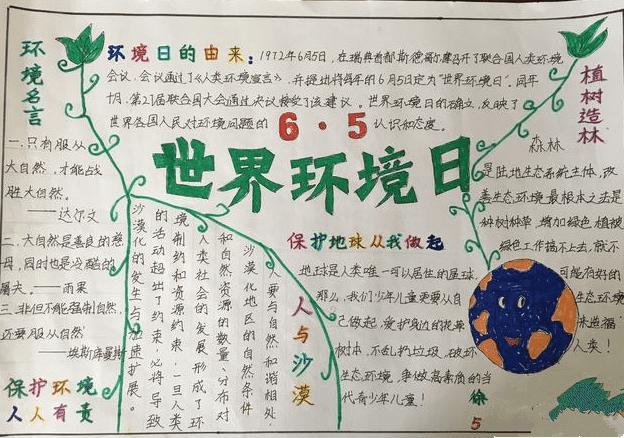 环境名言
一.只有服从
大自然,才能战
胜大自然。
——达尔文
二.大自然是善良的慈
母,同时也是冷酷的
屠夫。——雨果
三.非但不能强制自然,
还要服从自然。
——埃斯库曼斯
保护环境
人人有责
环境日的由来:1972年6月5日,在瑞典首都斯德哥尔摩召开了联合国人类环境
会议,会议通过了《人类环境宣言》,并提出将每年的6月5日定为"世界环境日"。同年
十月,第27届联合国大会通过决议接受了该建议。世界环境日的确立,反映了
世界各国人民对环境问题的
6·5
认识和态度。
世界环境日
植树造林
森林
是陆地生态系统主体,改
善生态环境最根本之法是
种树种草,增加绿色植被
绿色工作搞不上去,就不
可能有好的
生态环境
来造福
人类!
人与沙漠
人要与自然和谐相处.
沙漠化地区的自然条件
和自然资源的数量、分布对
人类社会的发展形成了环
境制约和资源约束,一旦人类
的活动超出了约束,必将导致
沙漠化的发生与加速扩展。
保护地球从我做起
地球是人类唯一可以居住的星球,
那么,我们少年儿童更要从自
己做起,爱护身边的花草
树木,不乱扔垃圾,破坏
生态环境,争做高素质的当
代奇少年儿童!
徐
5